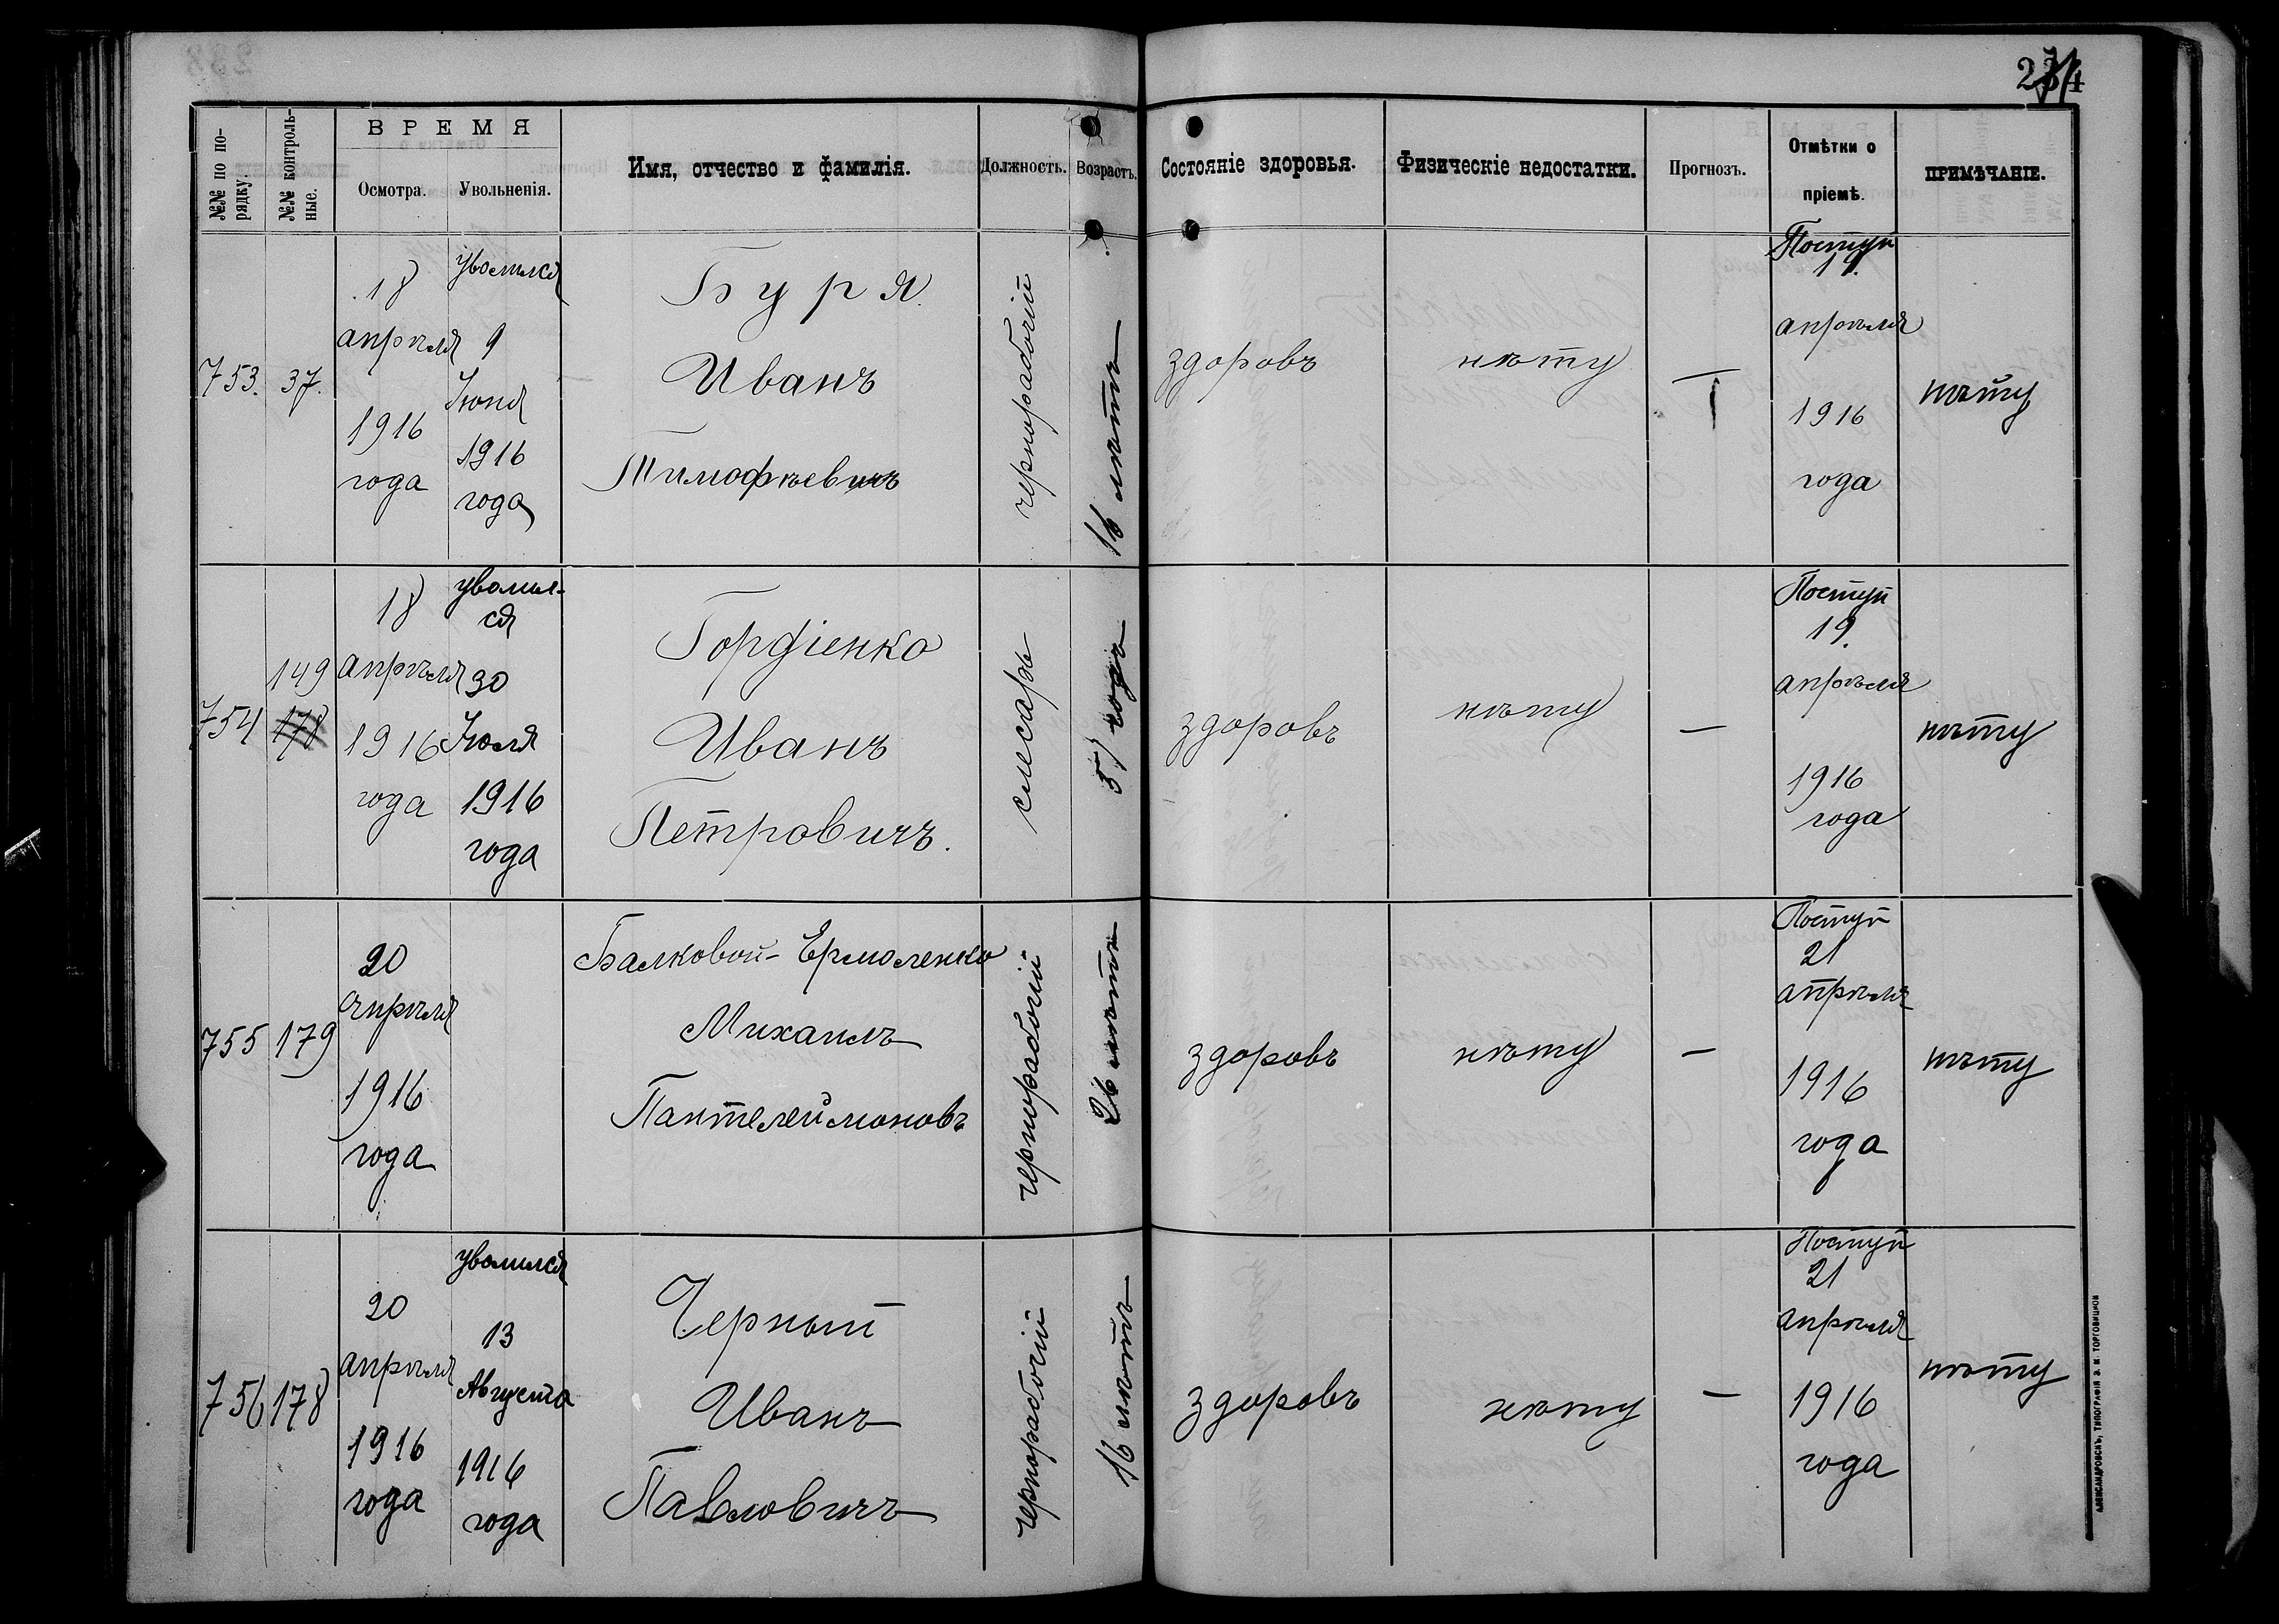 234
№№ по по-
рядку.
№№ контроль-
ные.
ВРЕМЯ
Осмотра.
Увольненія.
Имя, отчество и фамилія.
Должность.
Возрастъ.
Состояніе здоровья.
Физическіе недостатки.
Прогнозъ.
Отмѣтки о
пріемѣ.
ПРИМѢЧАНІЕ.
753.
37.
18
апрѣля
1916
года
уволился
9
Июня
1916
года
Буря
Иванъ
Тимофѣевичъ
чернорабочій
16 лѣтъ
здоровъ
нѣту
—
Поступ
19.
апрѣля
1916
года
нѣту
754
149
178
18
апрѣля
1916
года
уволил-
ся
30
Июля
1916
года
Гордіенко
Иванъ
Петровичъ.
слесарь
51 годъ
здоровъ
нѣту
—
Поступ
19.
апрѣля
1916
года
нѣту
755
179
20
апрѣля
1916
года
Балковой-Ермоленко
Михаилъ
Пантелеймоновъ
чернорабочій
26 лѣтъ
здоровъ
нѣту
—
Поступ
21
апрѣля
1916
года
нѣту
756
178
20
апрѣля
1916
года
уволился
13
Августа
1916
года
Черный
Иванъ
Павловичъ
чернорабочій
16 лѣтъ
здоровъ
нѣту
—
Поступ
21
апрѣля
1916
года
нѣту
АЛЕКСАНДРОВСКЪ, ТИПОГРАФІЯ Э. М. ТОРГОВИЦКОЙ